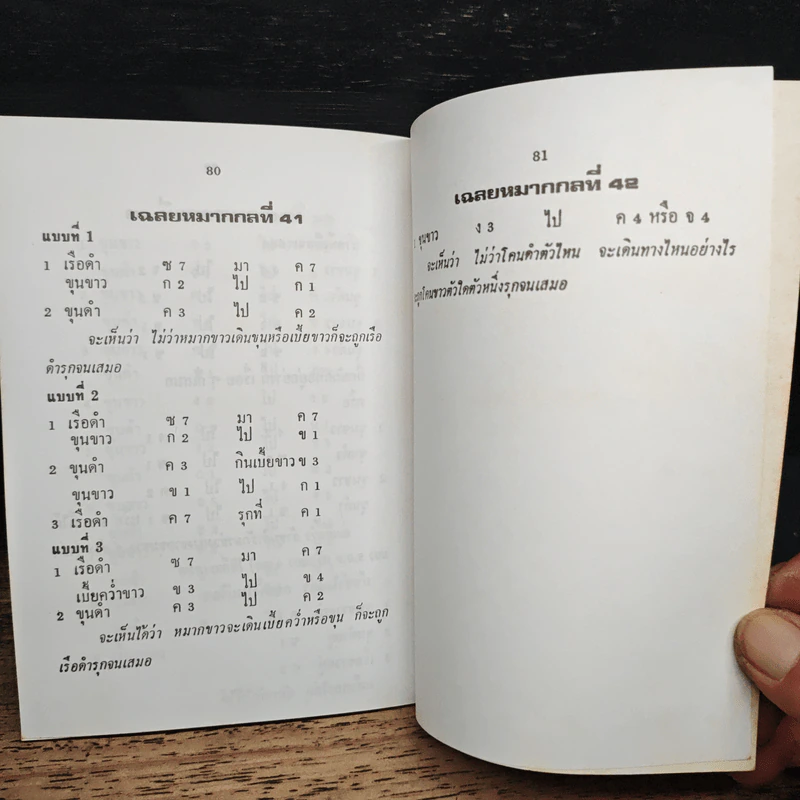 80
เฉลยหมากกลที่ 41
แบบที่ 1
1 เรือดำ ซ 7 มา ค 7
ขุนขาว ก 2 ไป ก 1
2 ขุนดำ ค 3 ไป ค 2
จะเห็นว่า ไม่ว่าหมากขาวเดินขุนหรือเบี้ยขาวก็จะถูกเรือ
ดำรุกจนเสมอ
แบบที่ 2
1 เรือดำ ซ 7 มา ค 7
ขุนขาว ก 2 ไป ข 1
2 ขุนดำ ค 3 กินเบี้ยขาว ข 3
ขุนขาว ข 1 ไป ก 1
3 เรือดำ ค 7 รุกที่ ค 1
แบบที่ 3
1 เรือดำ ซ 7 มา ค 7
เบี้ยคว่ำขาว ข 3 ไป ข 4
2 ขุนดำ ค 3 ไป ค 2
จะเห็นได้ว่า หมากขาวจะเดินเบี้ยคว่ำหรือขุน ก็จะถูก
เรือดำรุกจนเสมอ
81
เฉลยหมากกลที่ 42
1 ขุนขาว ง 3 ไป ค 4 หรือ จ 4
จะเห็นว่า ไม่ว่าโคนดำตัวไหน จะเดินทางไหนอย่างไร
จะถูกโคนขาวตัวใดตัวหนึ่งรุกจนเสมอ